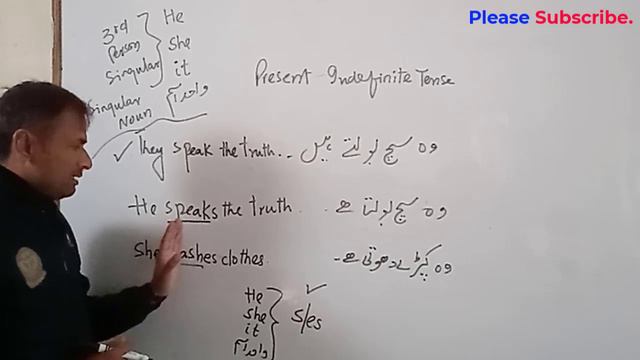 Please Subscribe.
3rd Person Singular
He
She
it
Singular Noun
Present Indefinite Tense
They speak the truth. وہ سچ بولتے ہیں
He speaks the truth وہ سچ بولتا ہے
She washes clothes. وہ کپڑے دھوتی ہے-
He
She
it
s/es